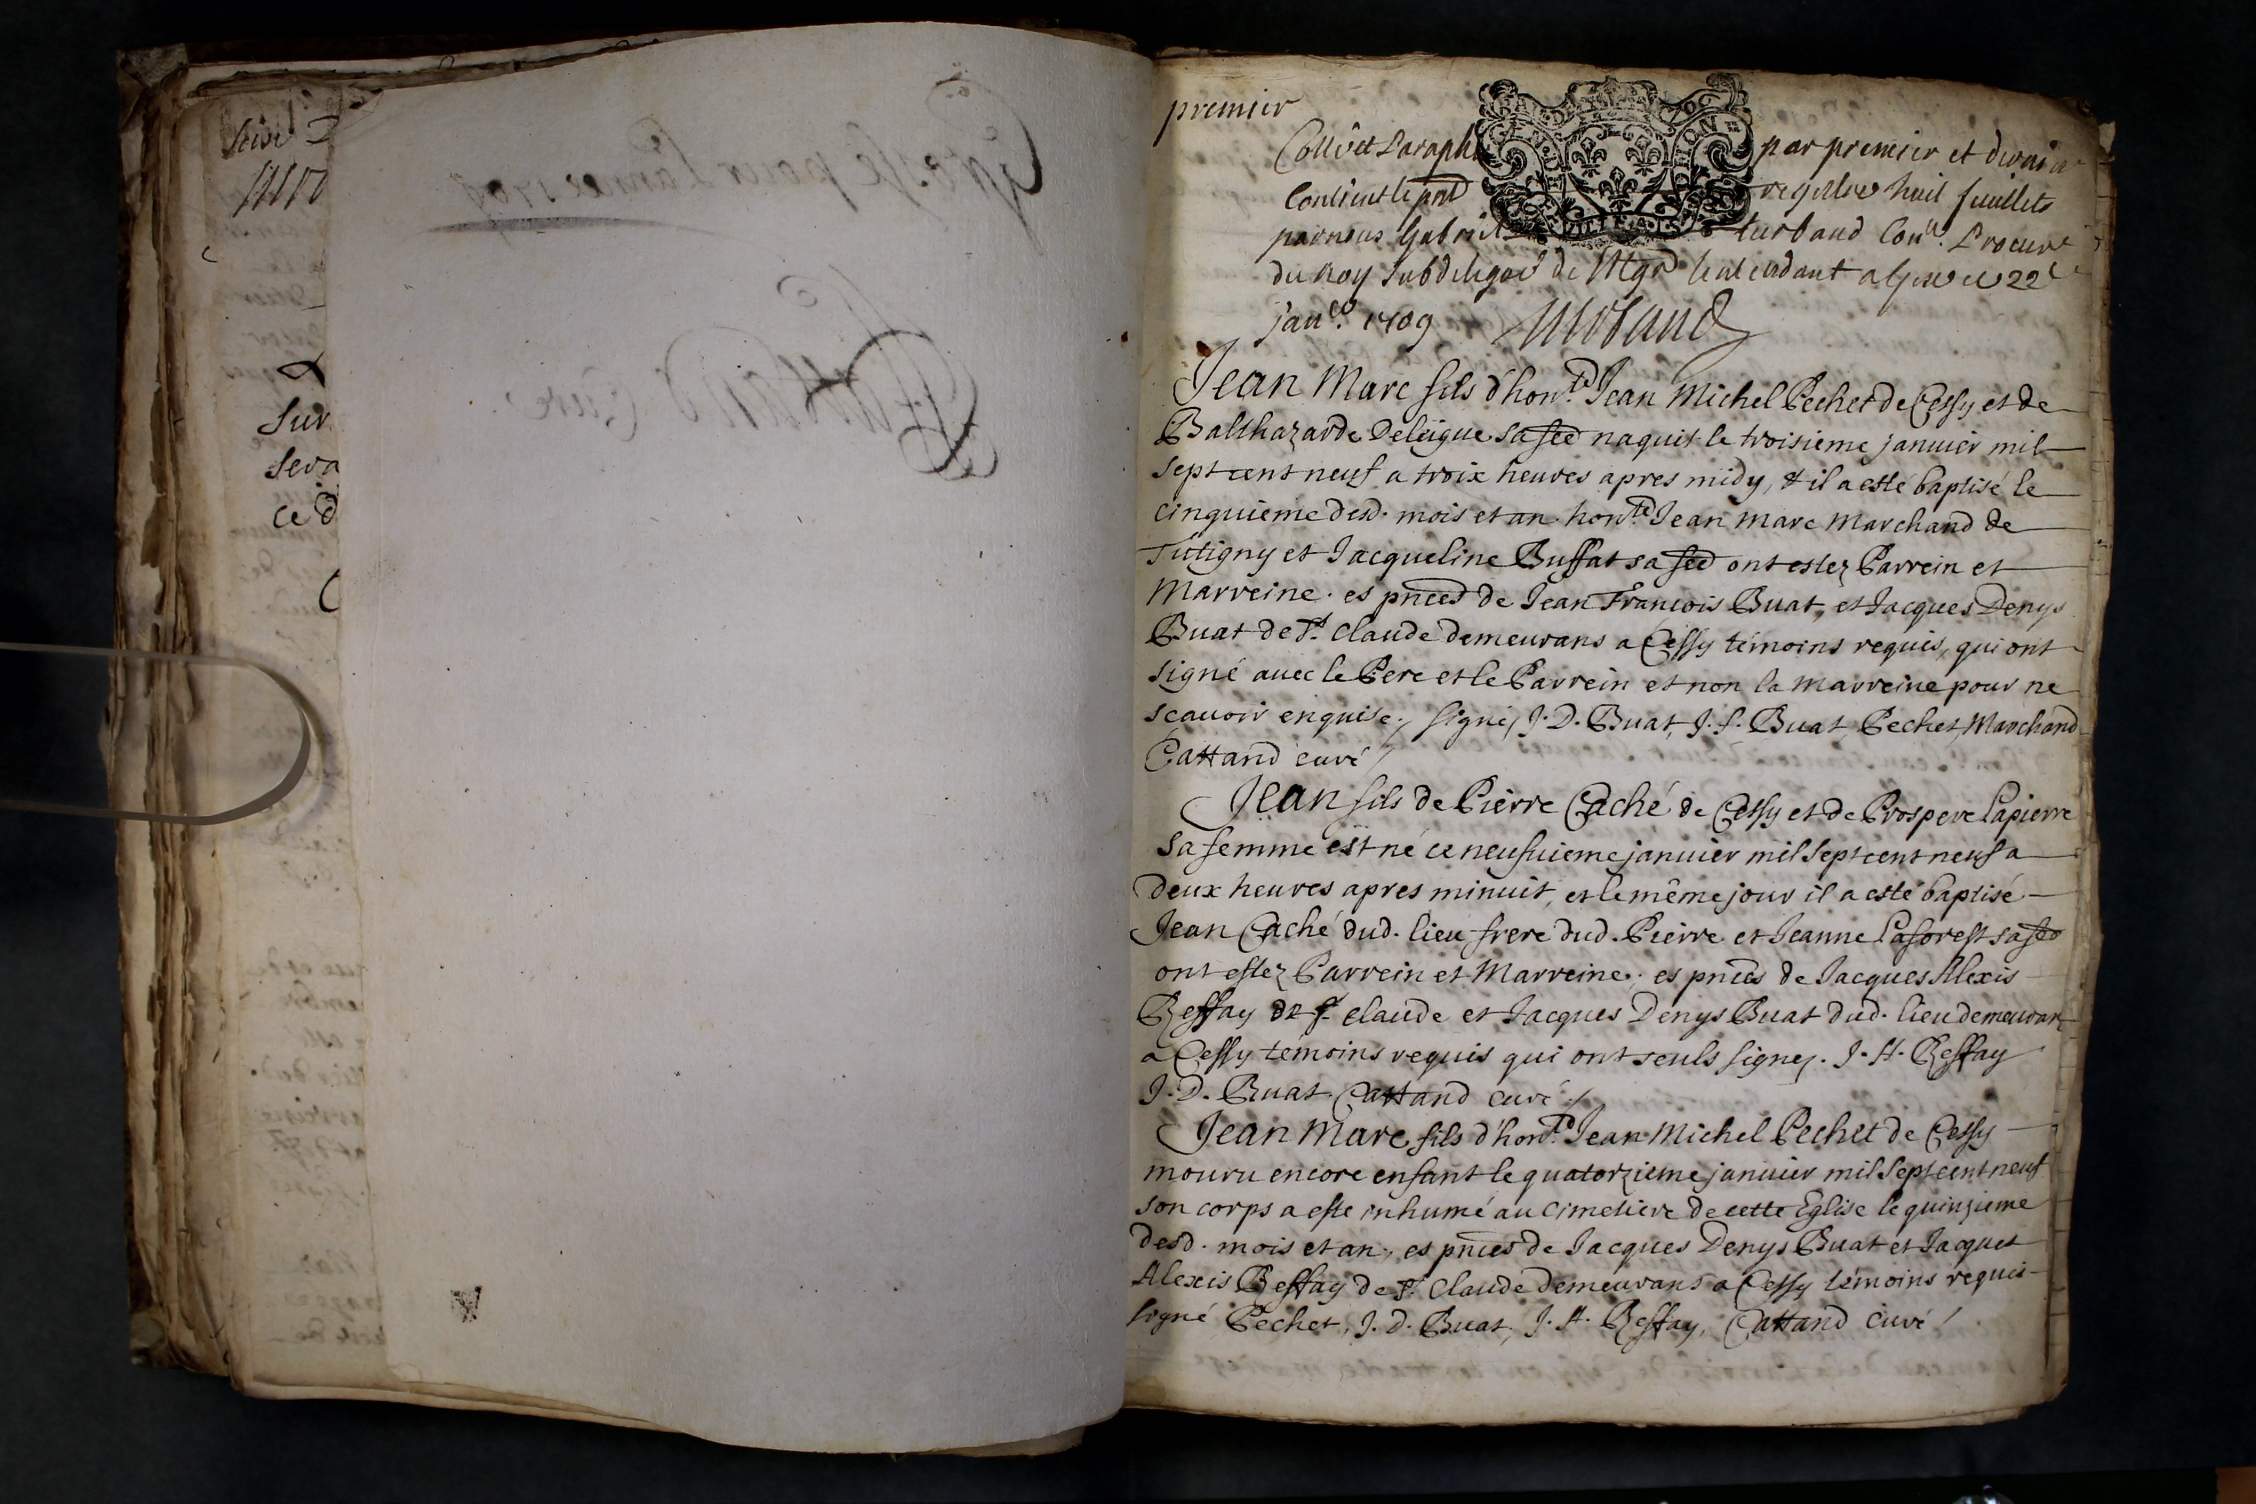 premier
Cotté et Paraphé par premier et dernier
Contient le pnt registre huit feuillets
par nous Gabriel turbaud Con.er Procur.r
du Roy Subdelegué de Mgr lintendant a Gex ce 22e
janv.er 1709 turbaud
Jean Marc fils d'hon.te Jean Michel Pechet de Cessy et de
Balthazarde Deleigue sa fee naquit le troisieme janvier mil
sept cent neuf a troix heures apres midy, & il a esté baptisé le
cinquieme desd. mois et an. hon.te Jean Marc Marchand de
Tutigny et Jacqueline Buffat sa fee ont estez Parrein et
Marreine. es pnces de Jean François Buat, et Jacques Denys
Buat de St. Claude demeurans a Cessy témoins requis, qui ont
signé avec le Pere et le Parrein et non la marreine pour ne
scavoir enquise./ signé, J. D. Buat, J. f. Buat Pechet, Marchand
Cattand curé /
Jean fils de Pierre Caché de Cessy et de Prospere Lapierre
sa femme est né ce neufuieme janvier mil sept cent neuf a
deux heures apres minuit, et le même jour il a esté baptisé
Jean Caché dud. lieu frere dud. Pierre et Jeanne Laforest sa fee
ont estez Parrein et Marreine, es pnces de Jacques Alexis
Reffay de St. Claude et Jacques Denys Buat dud. lieu demeurans
a Cessy témoins requis qui ont seuls signez. J. A. Reffay
J. D. Buat Cattand curé /
Jean Marc fils d'hon.te Jean Michel Pechet de Cessy
mouru encore enfant le quatorzieme janvier mil sept cent neuf
son corps a esté inhumé au cimetiere de cette Eglise le quinzieme
desd. mois et an, es pnces de Jacques Denys Buat et Jacques
Alexis Reffay de St. Claude demeurans a Cessy témoins requis
signé Pechet, J. D. Buat, J. A. Reffay, Cattand curé /